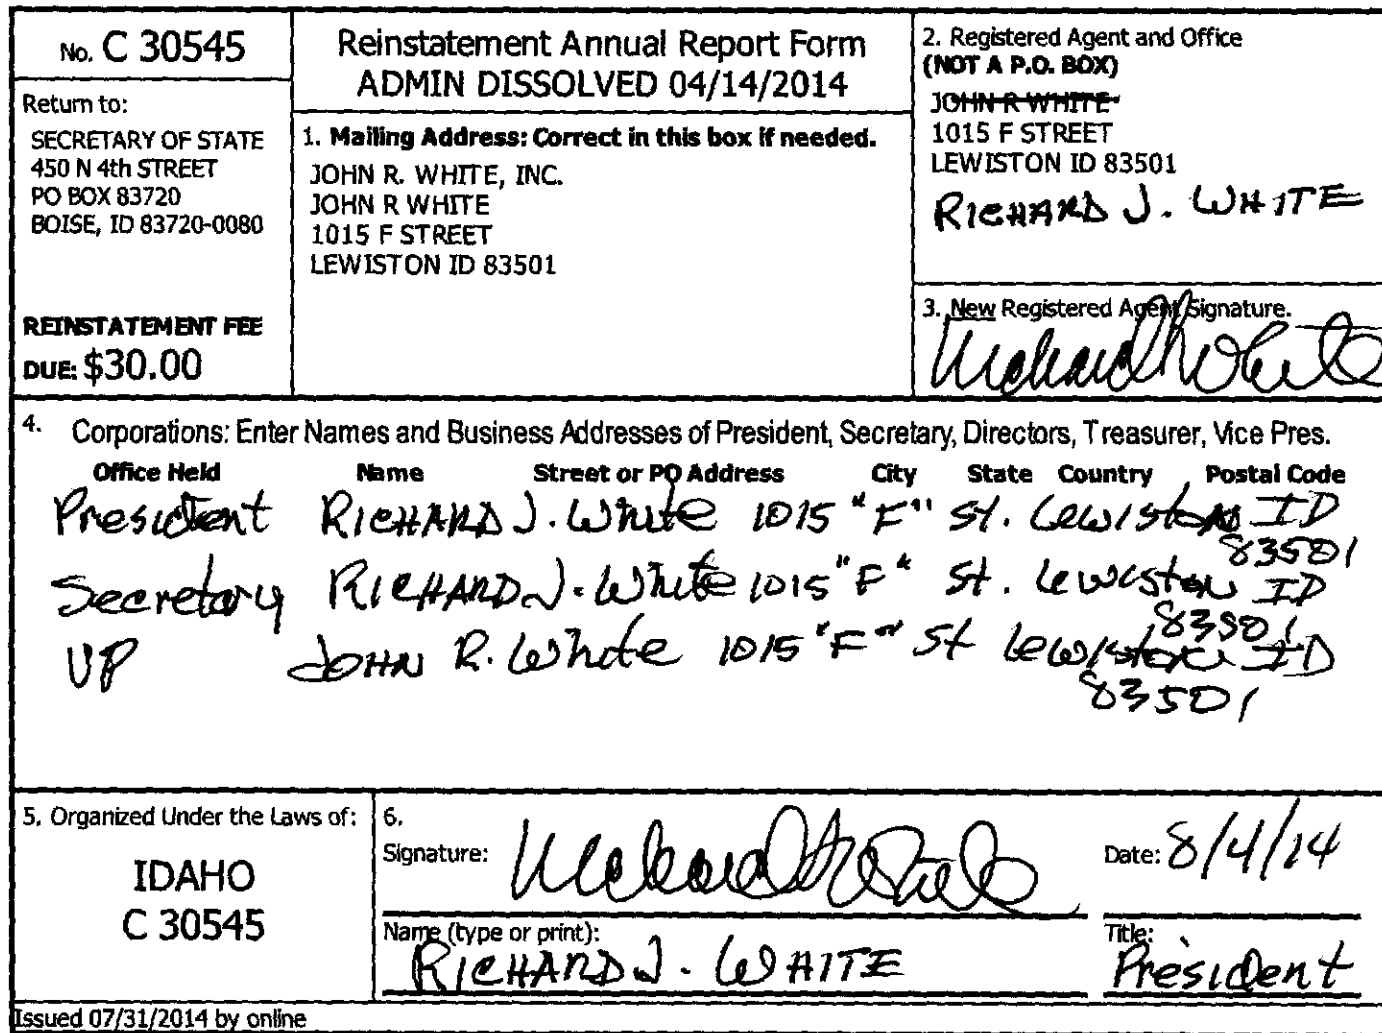 No. C 30545
Return to:
SECRETARY OF STATE
450 N 4th STREET
PO BOX 83720
BOISE, ID 83720-0080
REINSTATEMENT FEE
DUE: $30.00
Reinstatement Annual Report Form
ADMIN DISSOLVED 04/14/2014
1. Mailing Address: Correct in this box if needed.
JOHN R. WHITE, INC.
JOHN R WHITE
1015 F STREET
LEWISTON ID 83501
2. Registered Agent and Office
(NOT A P.O. BOX)
JOHN R WHITE
1015 F STREET
LEWISTON ID 83501
RICHARD J. WHITE
3. New Registered Agent Signature.
Richard J White
4. Corporations: Enter Names and Business Addresses of President, Secretary, Directors, Treasurer, Vice Pres.
Office Held Name Street or PO Address City State Country Postal Code
President RICHARD J. White 1015 "F" St. Lewiston ID
83501
Secretary RICHARD J. White 1015 "F" St. Lewiston ID
83501
VP JOHN R. White 1015 "F" St Lewiston ID
83501
5. Organized Under the Laws of:
IDAHO
C 30545
6.
Signature: Richard J White Date: 8/4/14
Name (type or print): Title:
RICHARD J. WHITE President
Issued 07/31/2014 by online